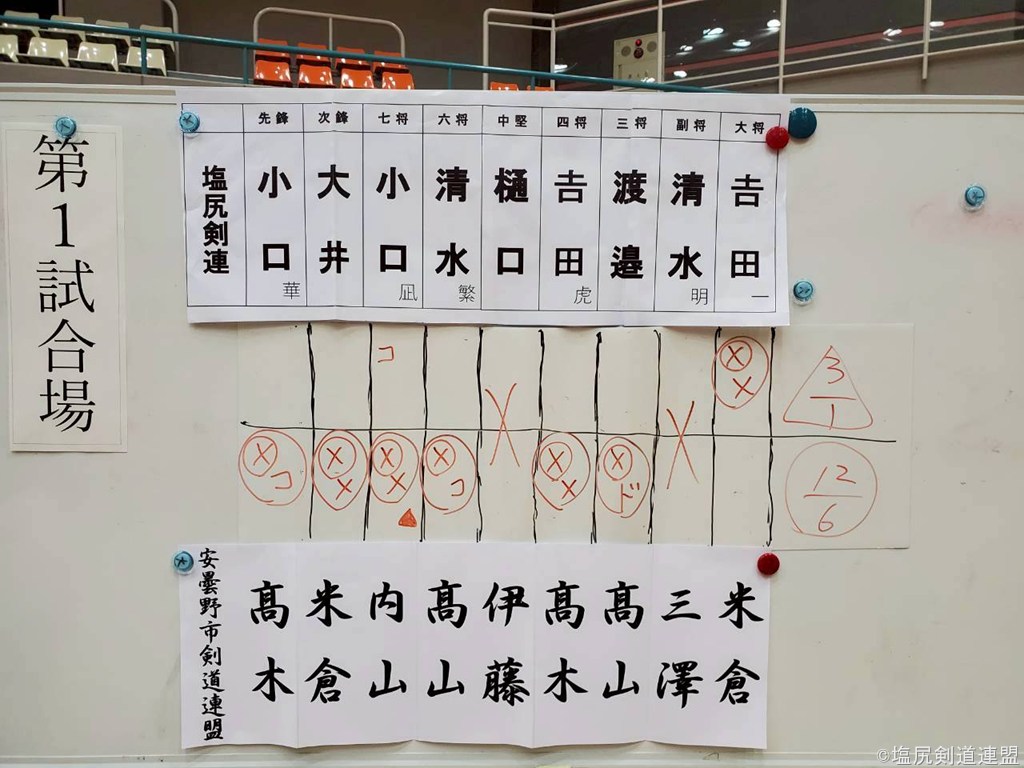 第1試合場
先鋒 次鋒 七将 六将 中堅 四将 三将 副将 大将
塩尻剣連
小口 華
大井
小口 凪
清水 繁
樋口
𠮷田 虎
渡邉
清水 明
𠮷田 一
コ メメ 3/1
メコ メメ メメ▲ メコ × メメ メド × 12/6
安曇野市剣道連盟
髙木
米倉
内山
髙山
伊藤
髙木
髙山
三澤
米倉
©塩尻剣道連盟